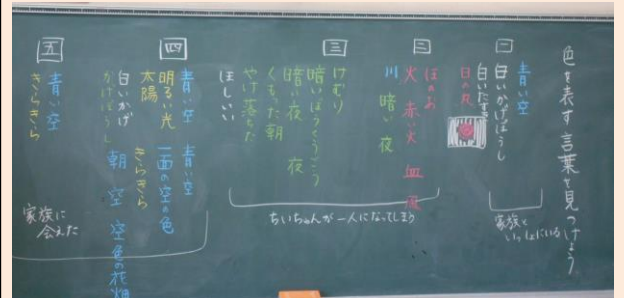 色を表す言葉を見つけよう
一
青い空
白いかげぼうし
日の丸
家族と
いっしょにいる
二
ほのお
火 赤い火 血 風
川 暗い 夜
三
けむり
暗いぼうくうごう
暗い夜 夜
くもった朝
やけ落ちた
ほしいい
ちいちゃんが一人になってしまう
四
青い空 青い空
明るい光 一面の空の色
太陽 きらきら
白いかげ 朝 空 空色の花畑
かげぼうし
五
青い空
きらきら
家族に
会えた